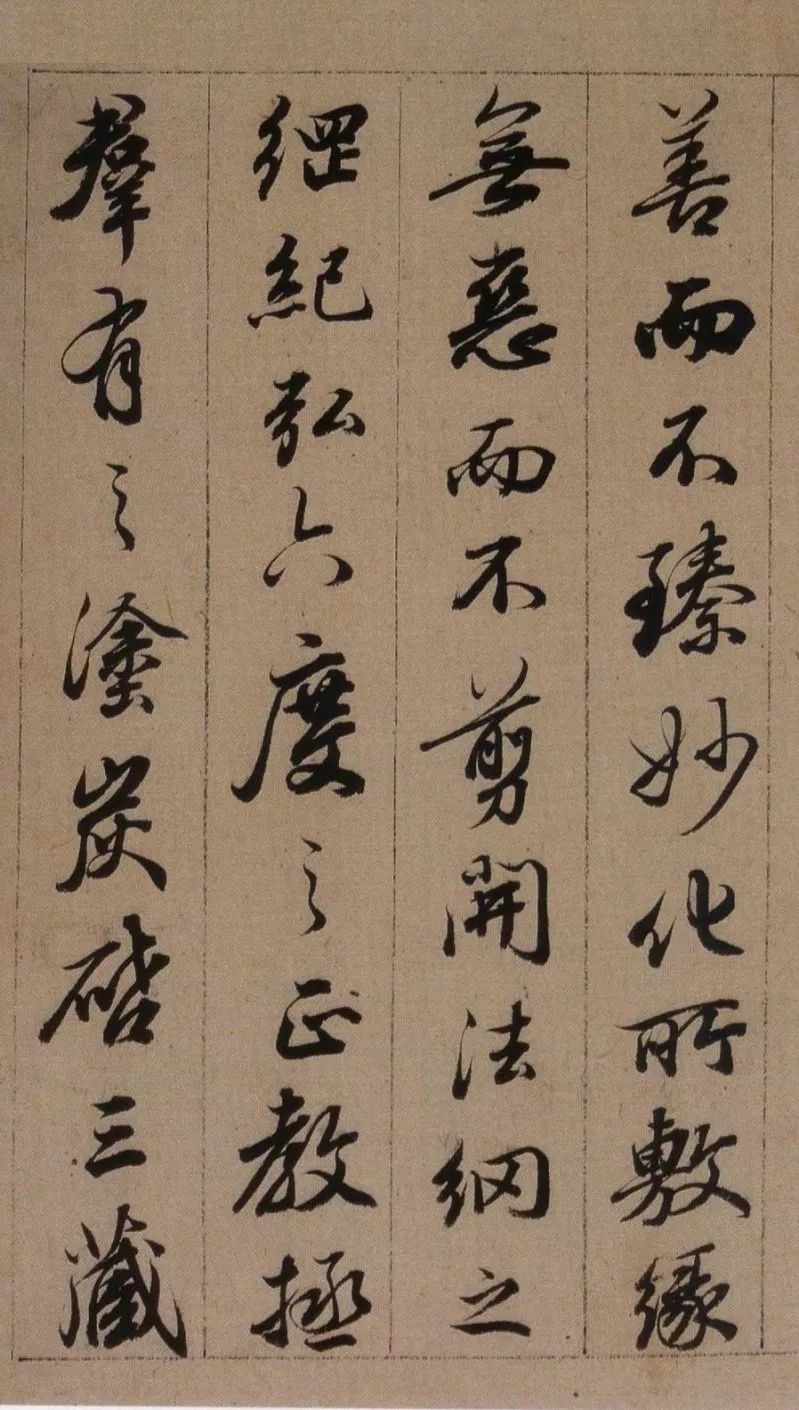 善而不臻妙化所敷緣
無惡而不剪開法網之
綱紀弘六度之正教拯
羣有之塗炭啓三藏